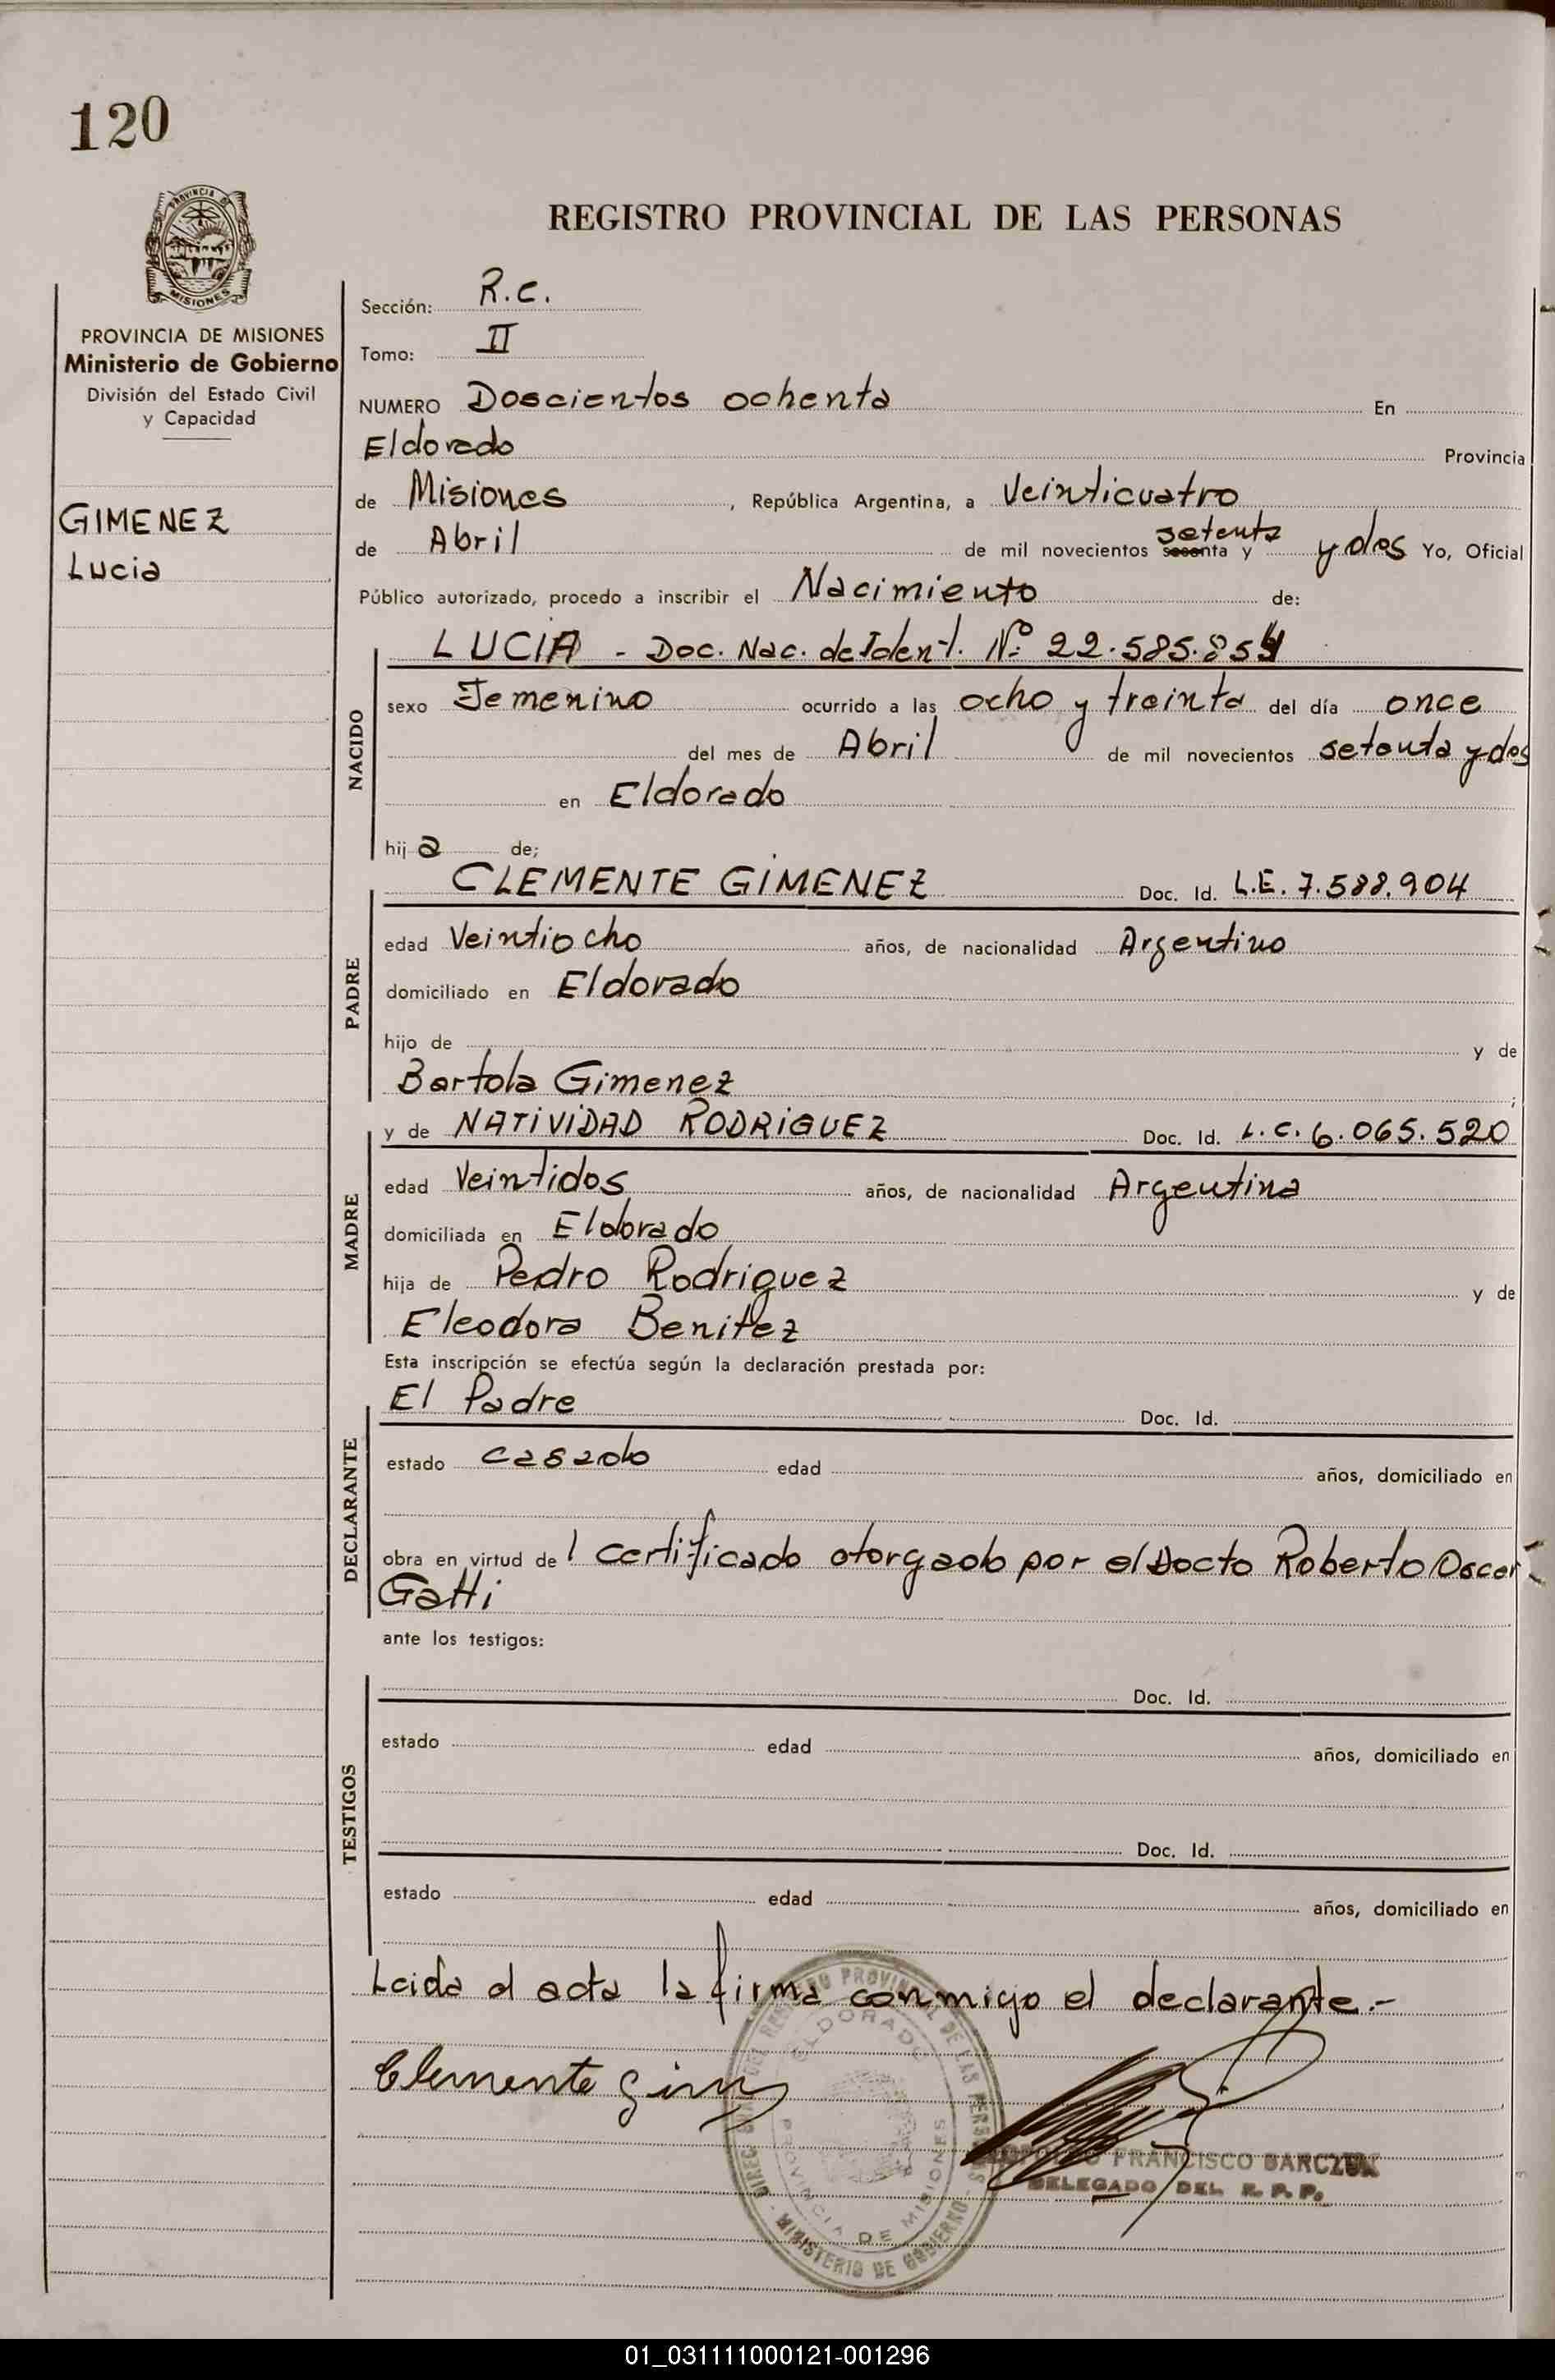 120
PROVINCIA DE
MISIONES
REGISTRO PROVINCIAL DE LAS PERSONAS
PROVINCIA DE MISIONES
Ministerio de Gobierno
División del Estado Civil
y Capacidad
GIMENEZ
Lucia
Sección: R.C.
Tomo: II
NUMERO Doscientos ochenta En
Eldorado Provincia
de Misiones, República Argentina, a Veinticuatro
de Abril de mil novecientos setenta y y dos Yo, Oficial
Público autorizado, procedo a inscribir el Nacimiento de:
NACIDO
LUCIA - Doc. Nac. de Ident. Nº 22.585.854
sexo Femenino ocurrido a las ocho y treinta del día once
del mes de Abril de mil novecientos setenta y dos
en Eldorado
hij a de;
PADRE
CLEMENTE GIMENEZ Doc. Id. L.E. 7.588.904
edad Veintiocho años, de nacionalidad Argentino
domiciliado en Eldorado
hijo de y de
Bartola Gimenez ;
MADRE
y de NATIVIDAD RODRIGUEZ Doc. Id. L.C. 6.065.520
edad Veintidos años, de nacionalidad Argentina
domiciliada en Eldorado
hija de Pedro Rodriguez y de
Eleodora Benitez
Esta inscripción se efectúa según la declaración prestada por:
DECLARANTE
El Padre Doc. Id.
estado casado edad años, domiciliado en
obra en virtud de l certificado otorgado por el Docto Roberto Oscar
Gatti
ante los testigos:
TESTIGOS
Doc. Id.
estado edad años, domiciliado en
Doc. Id.
estado edad años, domiciliado en
Leida el acta la firma conmigo el declarante.-
Clemente Gim
ELDORADO
PROVINCIA DE MISIONES
MINISTERIO DE GOBIERNO
FRANCISCO BARCZUK
DELEGADO DEL R. P. P.
01_031111000121-001296